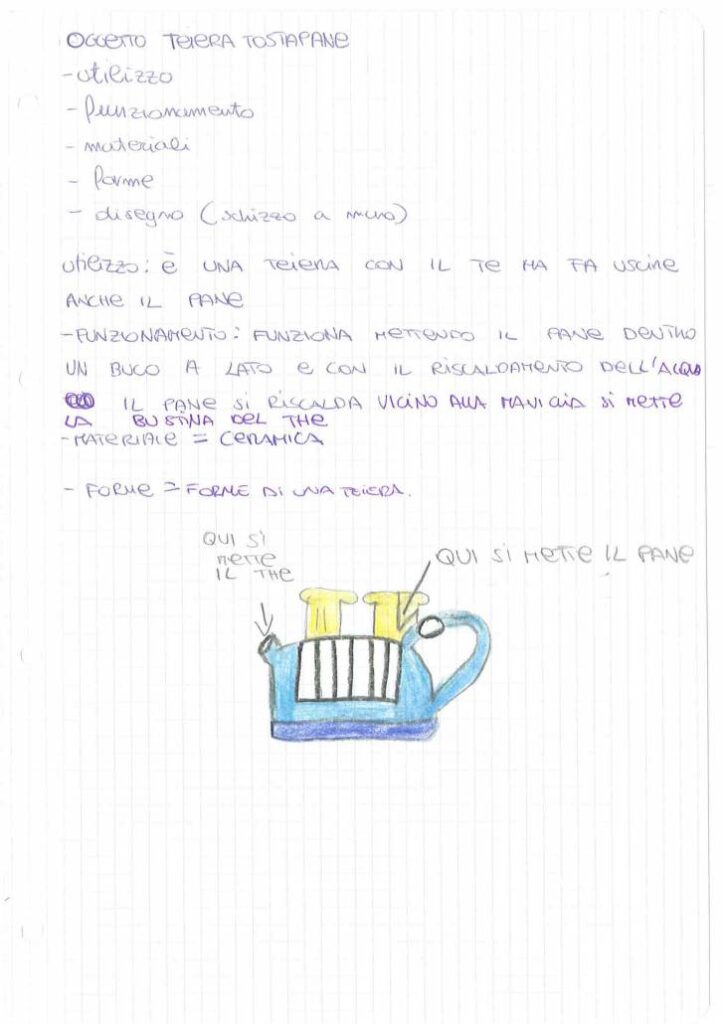 OGGETTO TEIERA TOSTAPANE
- utilizzo
- funzionamento
- materiali
- forme
- disegno (schizzo a mano)
utilizzo: è UNA TEIERA CON IL TE MA FA USCIRE
ANCHE IL PANE
- FUNZIONAMENTO: FUNZIONA METTENDO IL PANE DENTRO
UN BUCO A LATO E CON IL RISCALDAMENTO DELL'ACQUA
IL PANE SI RISCALDA VICINO ALLA MANICIA SI METTE
LA BUSTINA DEL THE
- MATERIALE = CERAMICA
- FORME = FORME DI UNA TEIERA.
QUI SI
METTE
IL THE
QUI SI METTE IL PANE